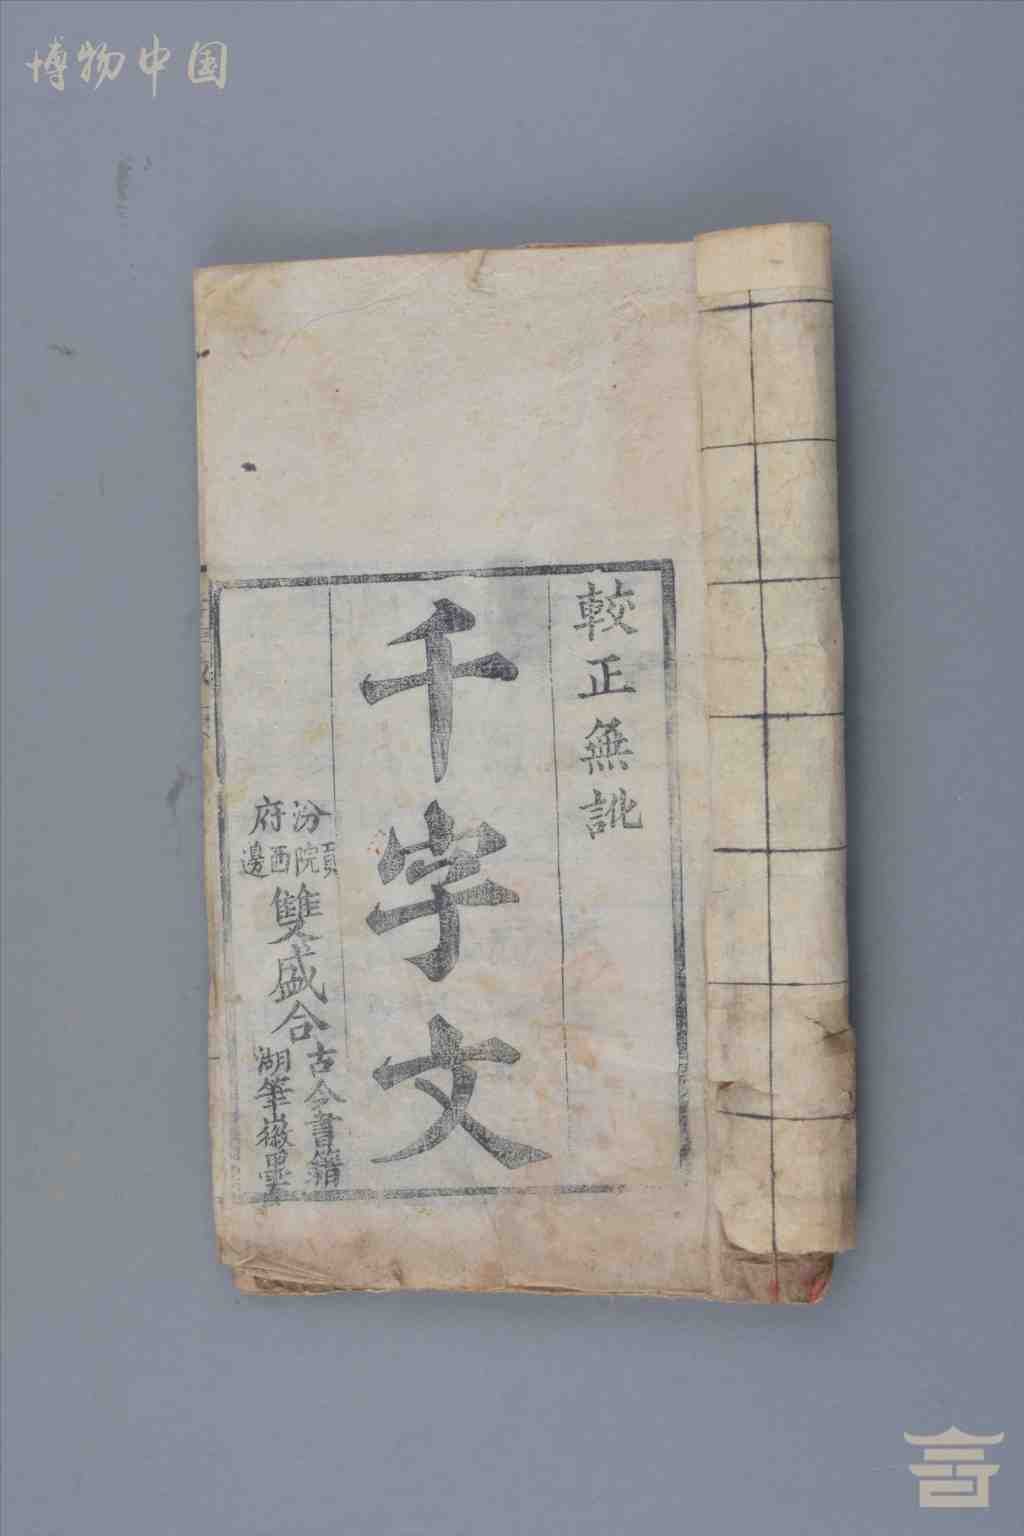 博物中国
較正無訛
千字文
汾府
貢院西邊
雙盛合
古今書籍
湖筆徽墨